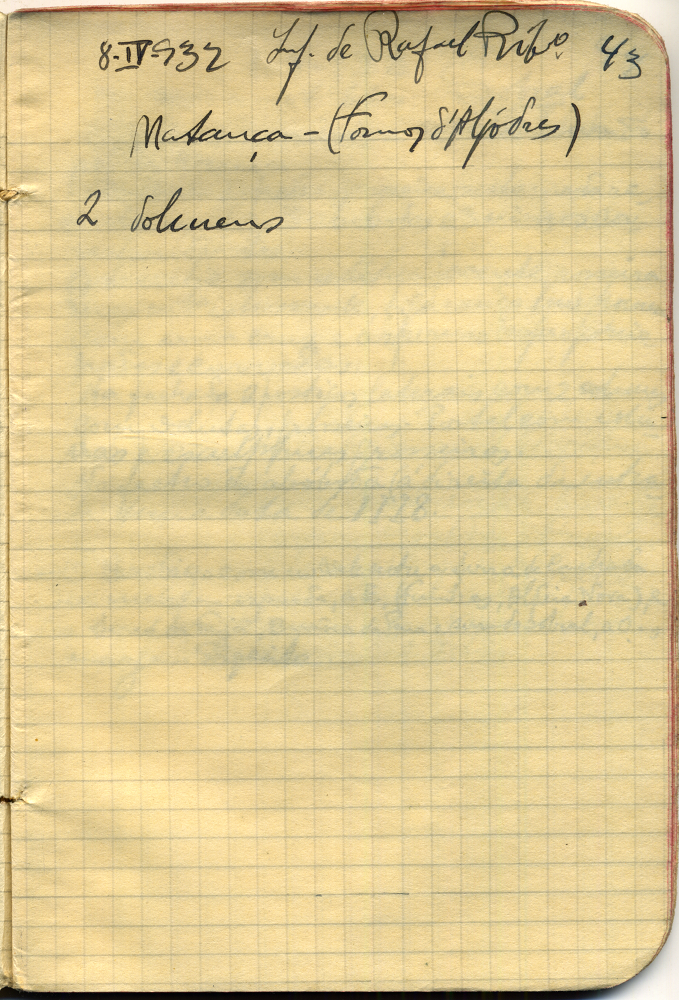 8-IV-932 Inf. de Rafael Ribº. 43
Matança - (Fornos d'Algodres)
2 dolmens